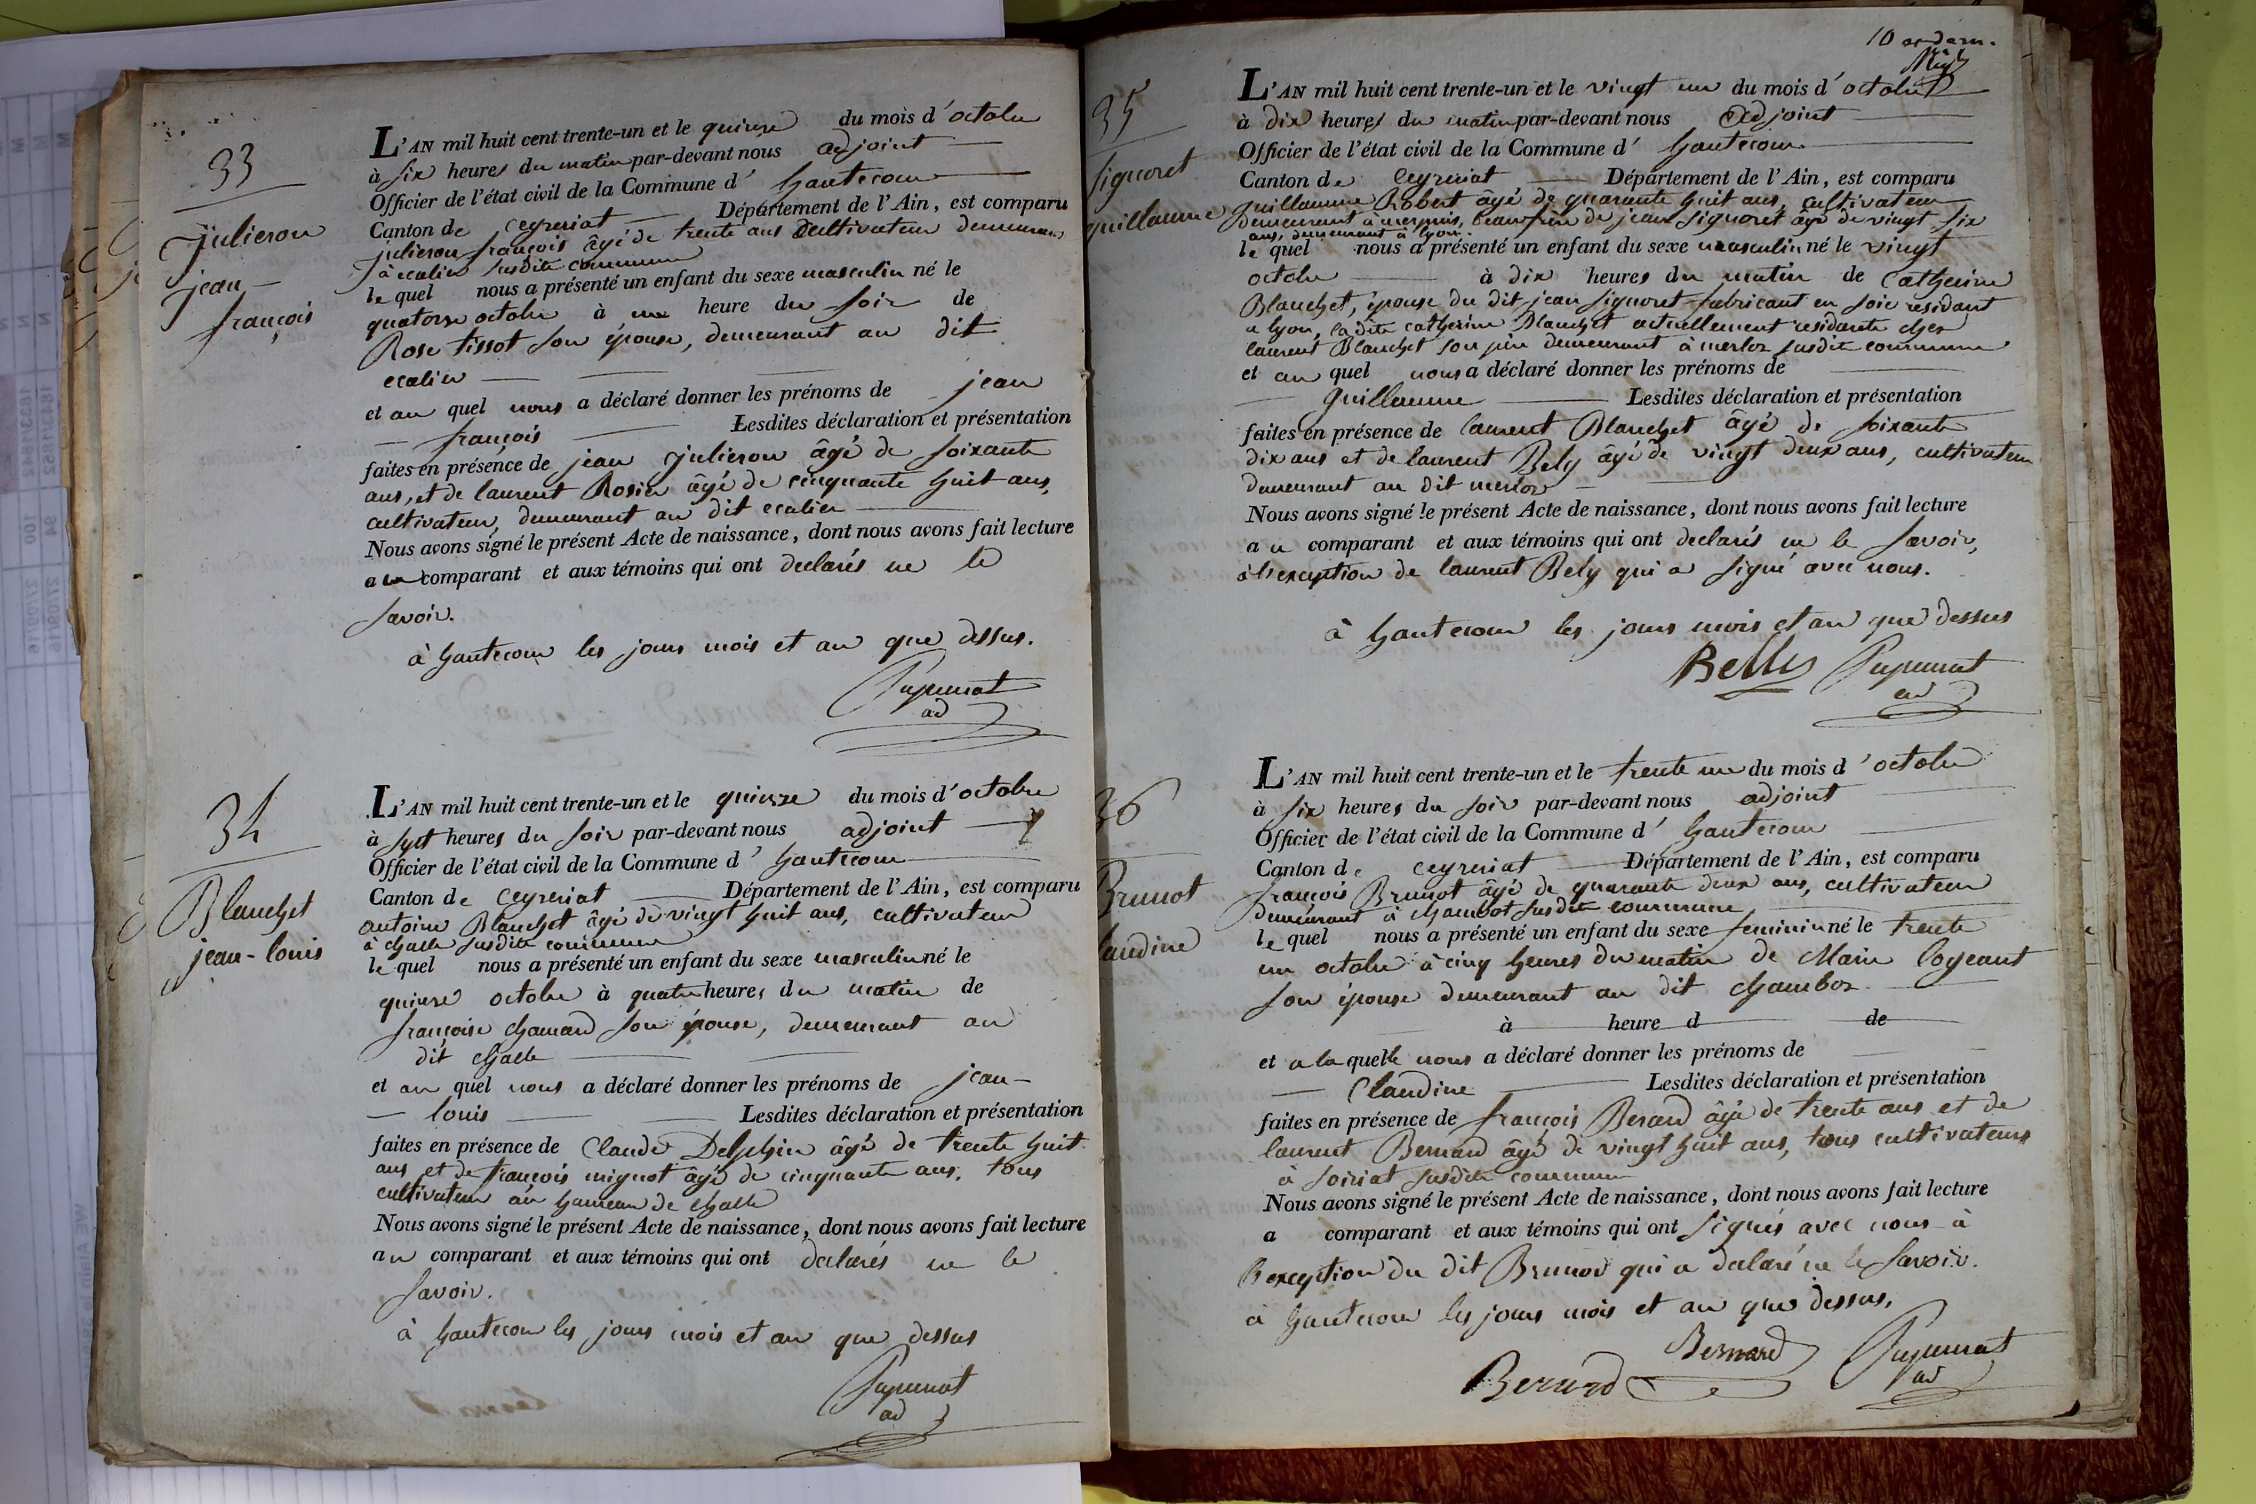 33
julieron
jean-
françois
L'AN mil huit cent trente-un et le quinze du mois d'octobre
à six heures du matin par-devant nous adjoint
Officier de l'état civil de la Commune d'hautecour
Canton de ceyzeriat Département de l'Ain, est comparu
julieron françois âgé de trente ans cultivateur demeurant
à ecalier susdite commune
le quel nous a présenté un enfant du sexe masculin né le
quatorze octobre à une heure du soir de
Rose tissot son épouse, demeurant au dit
ecalier
et au quel nous a déclaré donner les prénoms de jean
françois Lesdites déclaration et présentation
faites en présence de jean julieron âgé de soixante
ans, et de laurent Rosier âgé de cinquante huit ans,
cultivateur, demeurant au dit ecalier
Nous avons signé le présent Acte de naissance, dont nous avons fait lecture
au comparant et aux témoins qui ont declarés ne le
savoir.
à hautecour les jours mois et an que dessus.
ad
34
Blanchet
jean-louis
L'AN mil huit cent trente-un et le quinze du mois d'octobre
à sept heures du soir par-devant nous adjoint
Officier de l'état civil de la Commune d'hautecour
Canton de ceyzeriat Département de l'Ain, est comparu
antoine Blanchet âgé de vingt huit ans, cultivateur
à challe susdite commune
le quel nous a présenté un enfant du sexe masculin né le
quinze octobre à quatre heures du matin de
françoise chanard son épouse, demeurant au
dit challe
et au quel nous a déclaré donner les prénoms de jean-
louis Lesdites déclaration et présentation
faites en présence de Claude Delphin âgé de trente huit
ans et de françois mignot âgé de cinquante ans, tous
cultivateur au hameau de challe
Nous avons signé le présent Acte de naissance, dont nous avons fait lecture
au comparant et aux témoins qui ont declarés ne le
savoir.
à hautecour les jours mois et an que dessus
ad
10
35
signoret
guillaume
L'AN mil huit cent trente-un et le vingt un du mois d'octobre
à dix heures du matin par-devant nous adjoint
Officier de l'état civil de la Commune d'hautecour
Canton de ceyzeriat Département de l'Ain, est comparu
guillaume Robert âgé de quarante huit ans, cultivateur
demeurant à beaufrère de jean signoret âgé de vingt six
ans, demeurant à lyon.
le quel nous a présenté un enfant du sexe masculin né le vingt
octobre à dix heures du matin de Catherine
Blanchet, épouse du dit jean signoret fabricant en soie residant
a lyon, la dite catherine Blanchet actuellement residante chez
laurent Blanchet son père demeurant à merloz susdite commune
et au quel nous a déclaré donner les prénoms de
guillaume Lesdites déclaration et présentation
faites en présence de laurent Blanchet âgé de soixante
dix ans et de laurent Bely âgé de vingt deux ans, cultivateur
demeurant au dit merloz
Nous avons signé le présent Acte de naissance, dont nous avons fait lecture
au comparant et aux témoins qui ont declarés ne le savoir,
à l'exception de laurent Bely qui a signé avec nous.
à hautecour les jours mois et an que dessus
ad
36
Brunot
laudine
L'AN mil huit cent trente-un et le trente un du mois d'octobre
à six heures du soir par-devant nous adjoint
Officier de l'état civil de la Commune d'hautecour
Canton de ceyzeriat Département de l'Ain, est comparu
françois Brunot âgé de quarante deux ans, cultivateur
demeurant à chambot susdite commune
le quel nous a présenté un enfant du sexe feminin né le trente
un octobre à cinq heures du matin de Marie
son épouse demeurant au dit chamboz
à heure d de
et a la quelle nous a déclaré donner les prénoms de
Claudine Lesdites déclaration et présentation
faites en présence de françois Berard âgé de trente ans et de
laurent Bernard âgé de vingt huit ans, tous cultivateurs
à soiriat susdite commune
Nous avons signé le présent Acte de naissance, dont nous avons fait lecture
a comparant et aux témoins qui ont signés avec nous à
l'exception du dit Brunot qui a declaré ne le savoir.
à hautecour les jours mois et an que dessus,
Bernard
Berard
ad